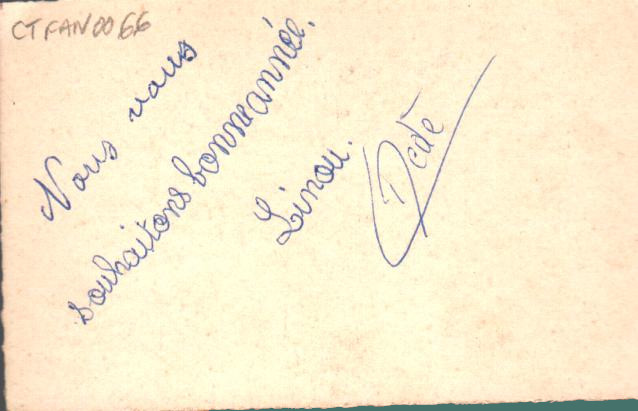 CTFAN0066
Nous vous
souhaitons bonne année.
Linou.
Dédé